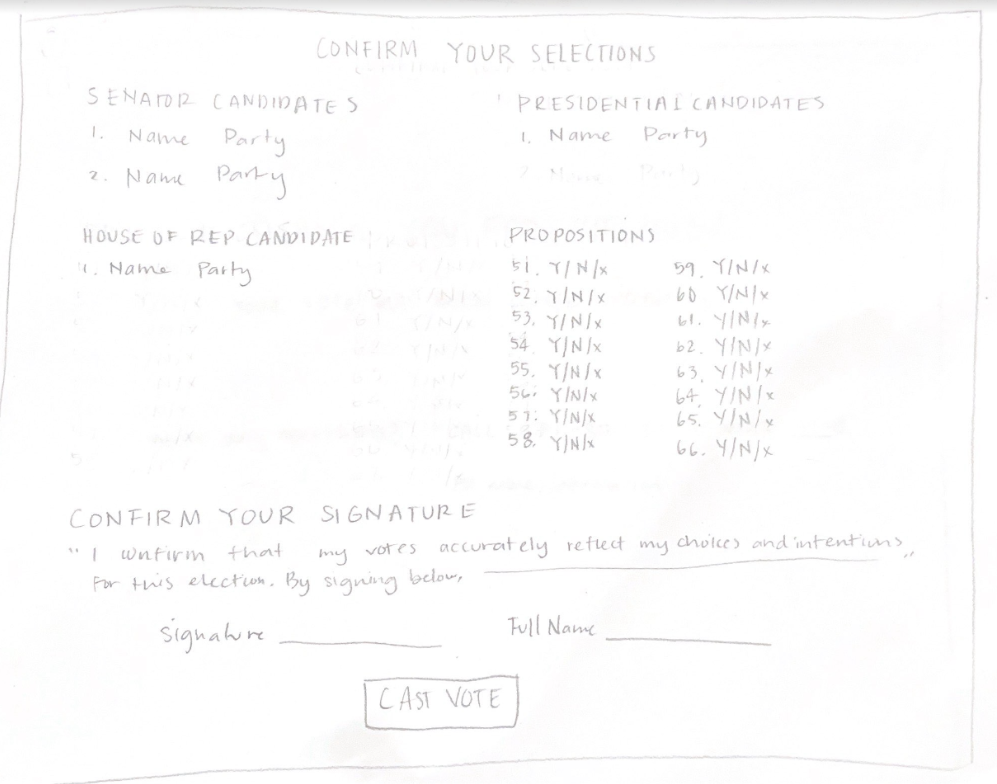 CONFIRM YOUR SELECTIONS
SENATOR CANDIDATES
1. Name Party
2. Name Party
PRESIDENTIAL CANDIDATES
1. Name Party
2. Name Party
HOUSE OF REP CANDIDATE
1. Name Party
PROPOSITIONS
51. Y/N/x
52. Y/N/x
53. Y/N/x
54. Y/N/x
55. Y/N/x
56. Y/N/x
57. Y/N/x
58. Y/N/x
59. Y/N/x
60 Y/N/x
61. Y/N/x
62. Y/N/x
63. Y/N/x
64. Y/N/x
65. Y/N/x
66. Y/N/x
CONFIRM YOUR SIGNATURE
"I confirm that my votes accurately reflect my choices and intentions
for this election. By signing below, "
Signature
Full Name
CAST VOTE